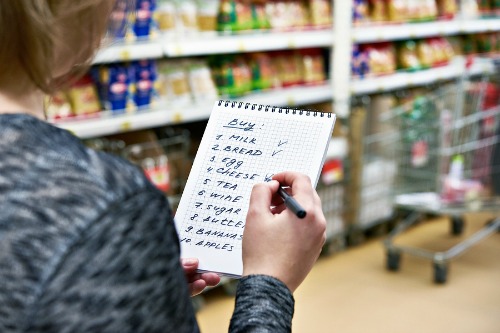 Buy:
1. MILK ✓
2. BREAD ✓
3. EGG
4. CHEESE
5. TEA
6. WINE
7. SUGAR
8. BUTTE
9. BANANA
10. APPLES